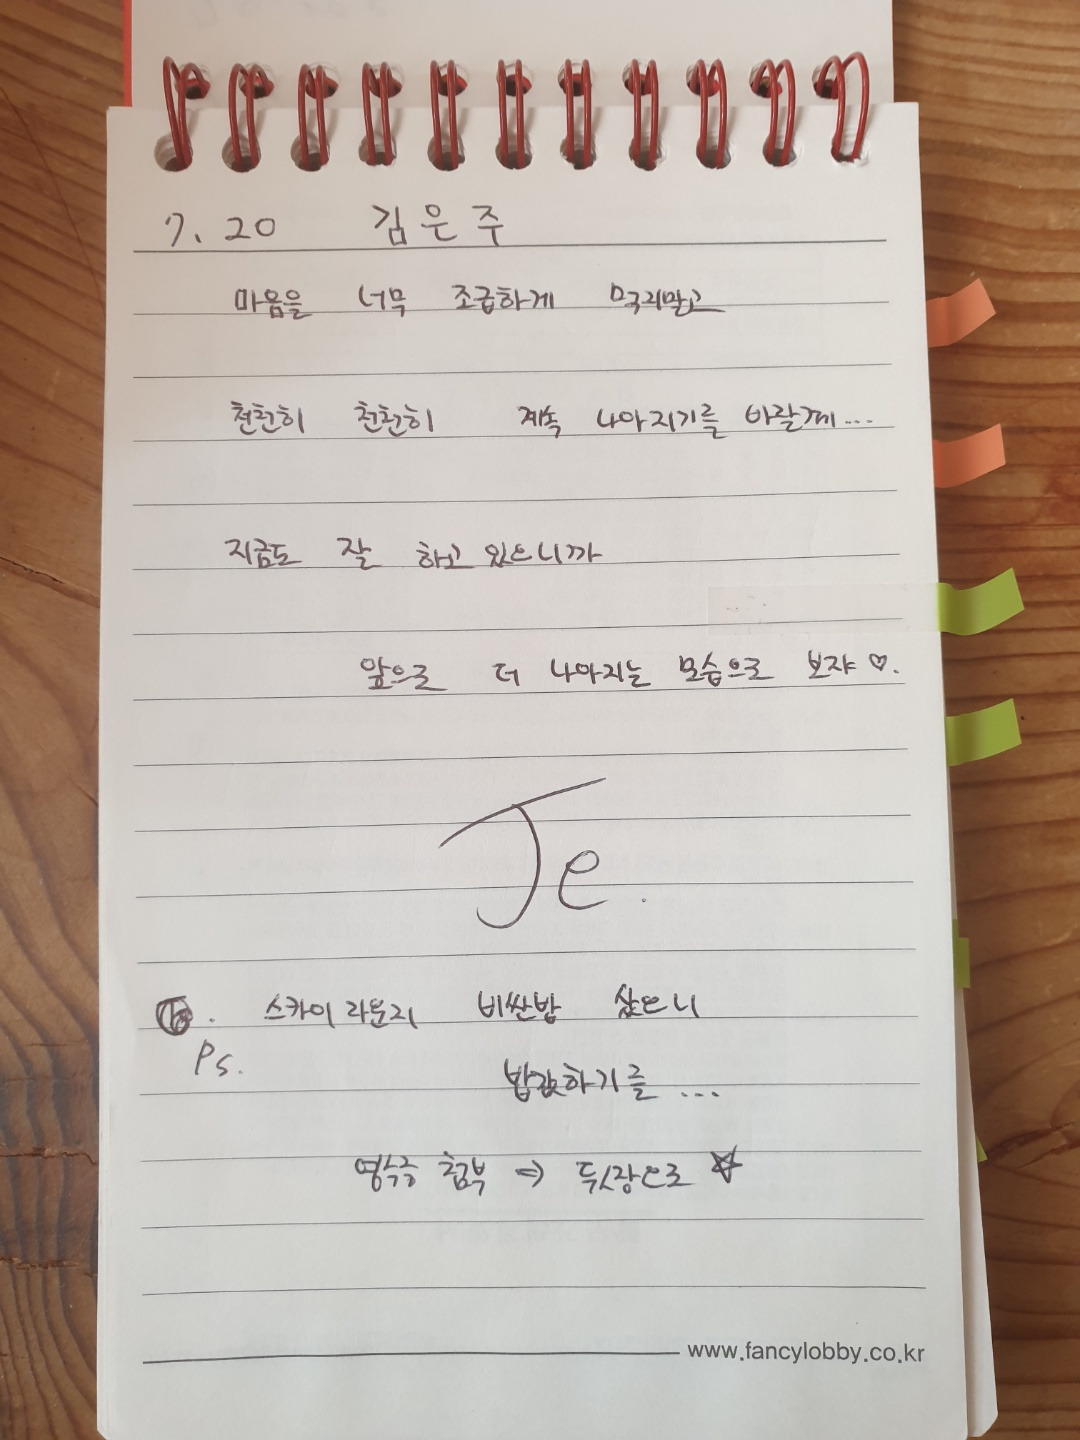 7. 20 김은주
마음을 너무 조급하게 먹지말고
천천히 천천히 계속 나아지기를 바랄게...
지금도 잘 하고 있으니까
앞으로 더 나아지는 모습으로 보자 ♡.
Je.
스카이라운지 비싼밥 샀으니
Ps.
밥값하기를 ...
영수증 첨부 ⇒ 뒷장으로 ☆
www.fancylobby.co.kr